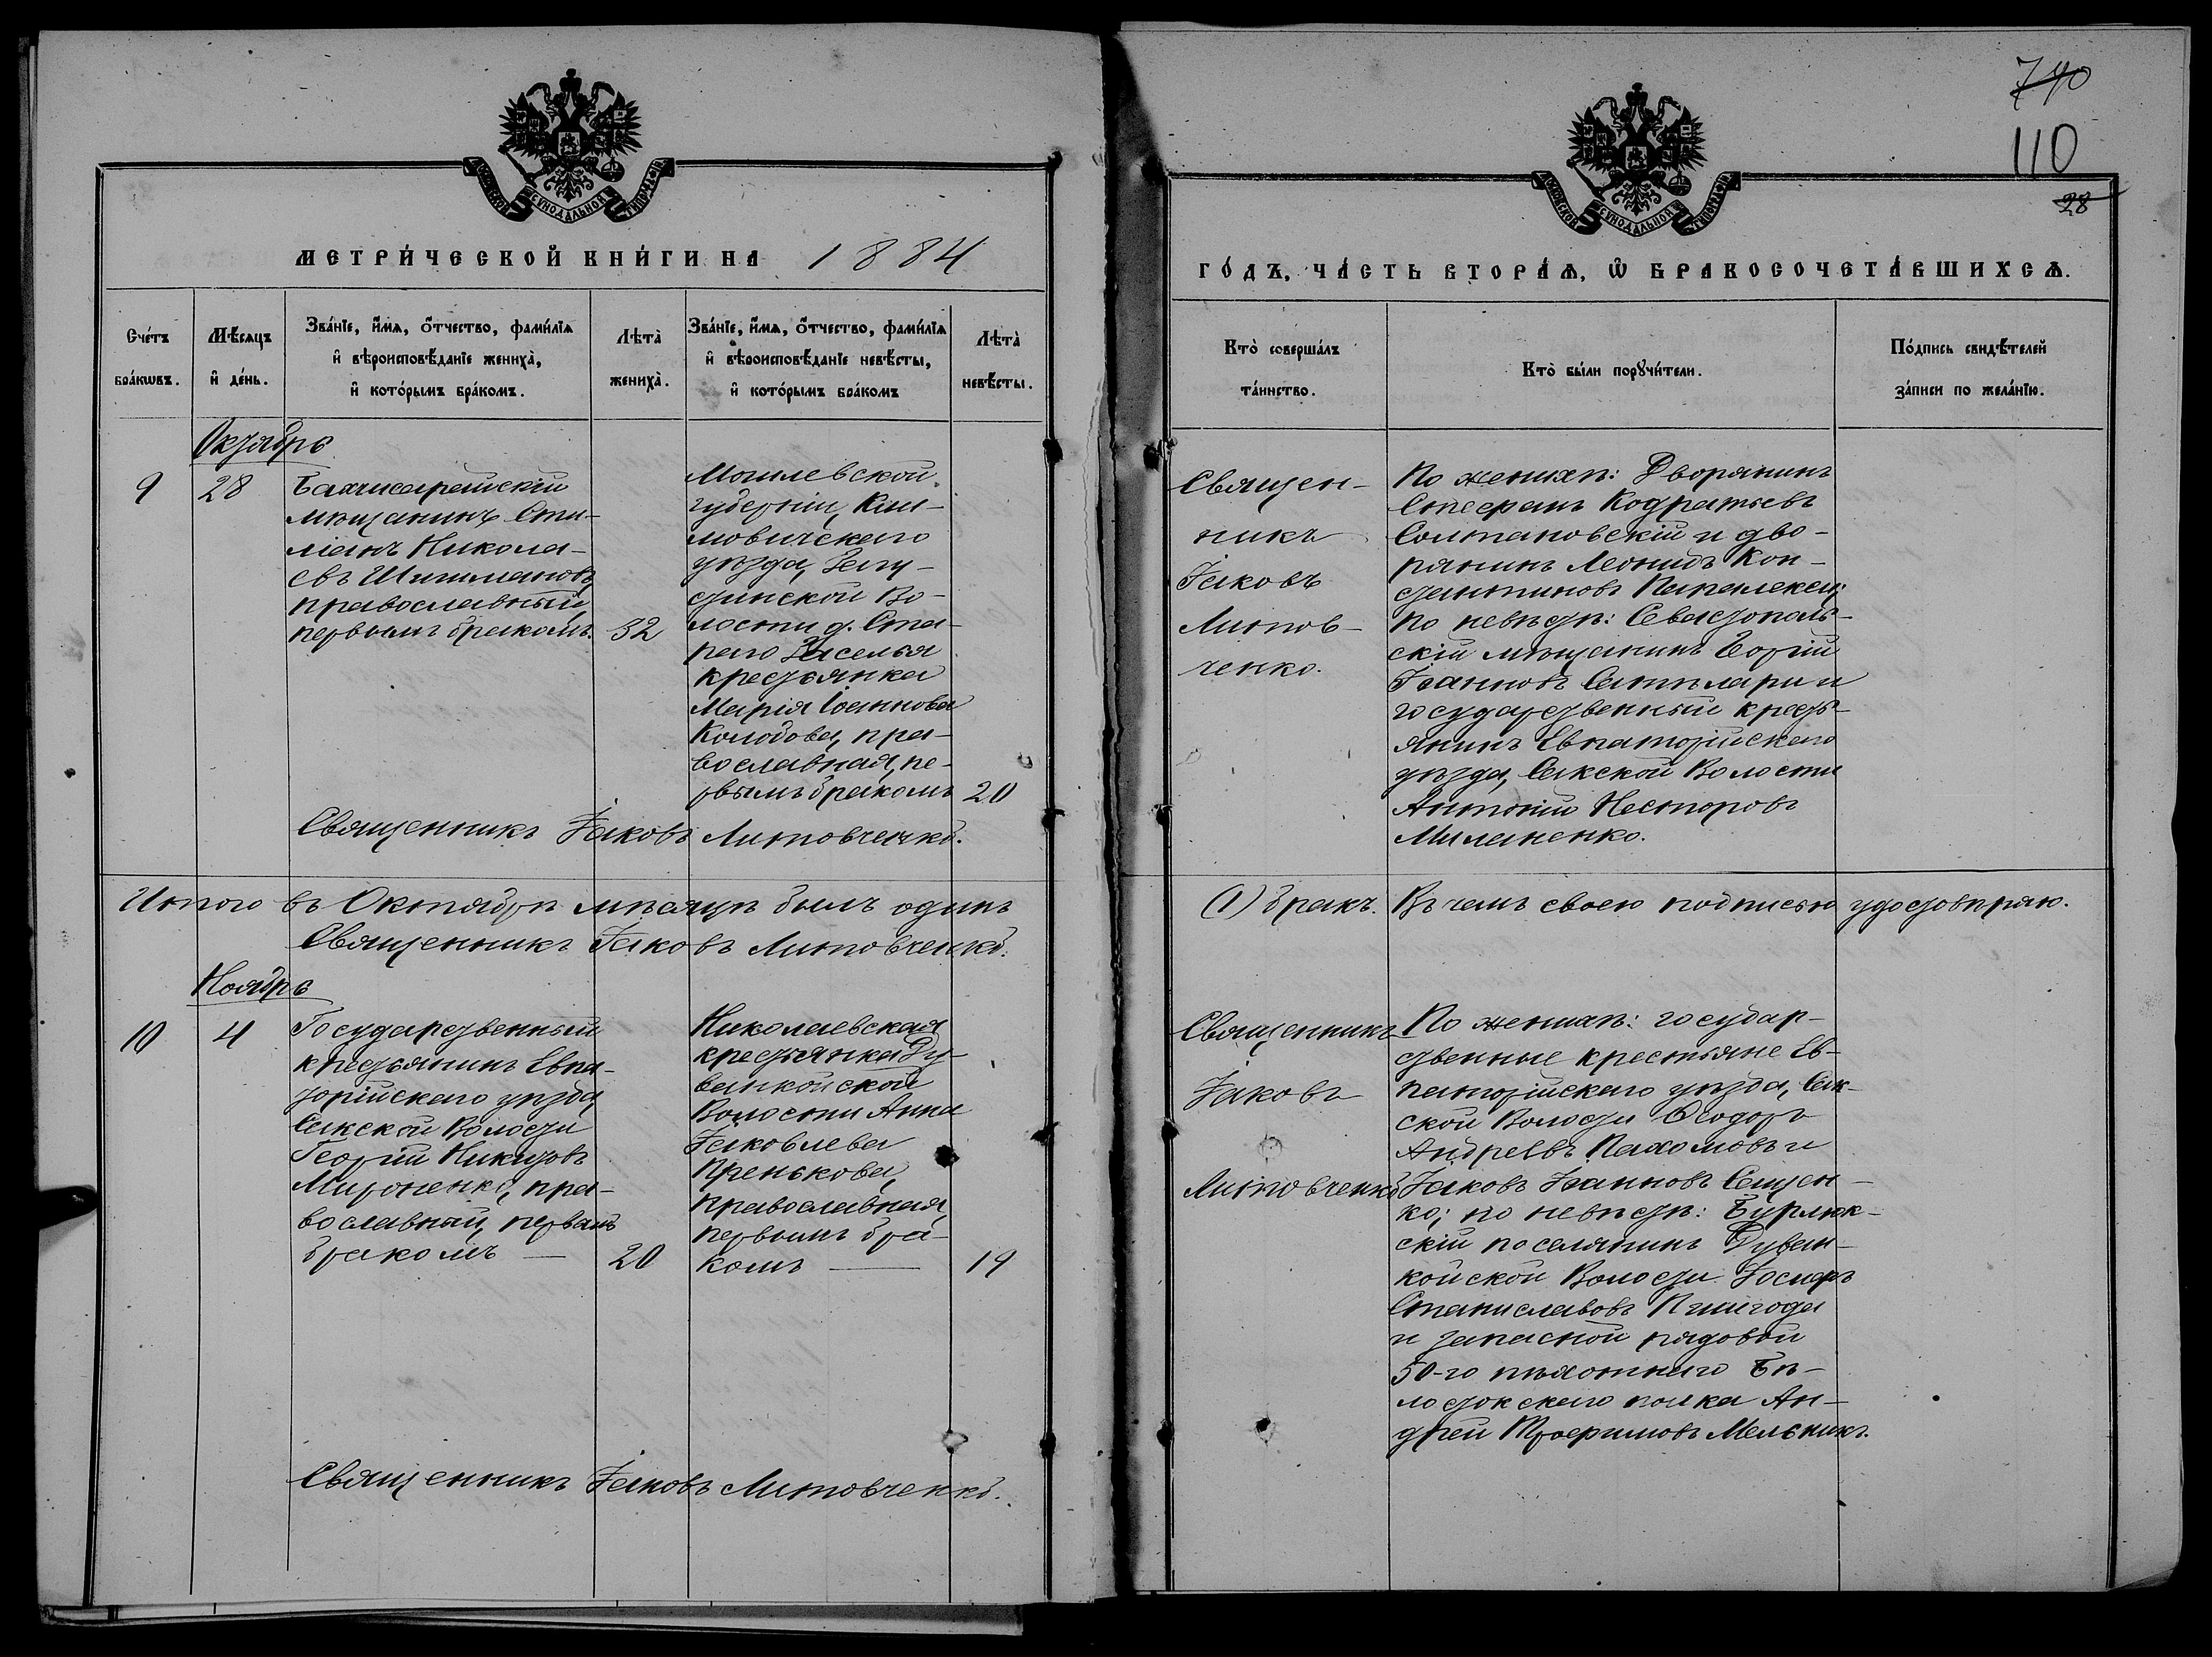 740
110
28
МОСКОВСКОЙ СѴНОДАЛЬНОЙ ТИПОГРАФІИ
МОСКОВСКОЙ СѴНОДАЛЬНОЙ ТИПОГРАФІИ
МЕТРИ́ЧЕСКОЙ КНИ́ГИ НА 1884
ГО́ДЪ, ЧА́СТЬ ВТОРА́Ѧ, Ѿ БРАКОСОЧЕТА́ВШИХСѦ.
Сче́тъ
бра́кѡвъ.
Мѣ́сяцъ
и҆ де́нь.
Зва́нїе, и҆́мѧ, ѻ҆́тчество, фами́лїѧ
и҆ вѣроисповѣ́данїе жениха̀,
и҆ кото́рымъ бра́комъ.
Лѣта̀
жениха̀.
Зва́нїе, и҆́мѧ, ѻ҆́тчество, фами́лїѧ
и҆ вѣроисповѣ́данїе невѣ́сты,
и҆ кото́рымъ бра́комъ
Лѣта̀
невѣ́сты.
Кто̀ соверша́лъ
та́инство.
Кто̀ бы́ли порꙋчи́тели.
По́дпись свидѣ́телей
за́писи по жела́нїю.
Октябрь
9
28
Бахчисарайскій
мѣщанинъ Сти-
ліанъ Никола-
евъ Шишмановъ,
православный,
первымъ бракомъ.
32
Могилевской
губерніи, Кли-
мовичскаго
уѣзда,
Во-
лости д. Ста-
раго Заселья
крестьянка
Марія Іоаннова
Колодова, пра-
вославная, пе-
рвымъ бракомъ
20
Священ-
никъ
Іаковъ
Литов-
ченко.
По женихѣ: Дворянинъ
Стефанъ Кодратьевъ
Солтановскій и дво-
рянинъ Леонидъ Кон-
стантиновъ
по невѣстѣ: Севастополь-
скій мѣщанинъ Георгій
Іоанновъ и
государственный кресть-
янинъ Евпаторійскаго
уѣзда, Сакской Волости
Антоній Несторовъ
Миланенко.
Священникъ Іаковъ Литовченко.
Итого въ Октябрѣ мѣсяцѣ былъ одинъ (1) бракъ. Въ чемъ своею подписью удостовѣряю.
Священникъ Іаковъ Литовченко.
Ноябрь
10
4
Государственный
крестьянинъ Евпа-
торійскаго уѣзда,
Сакской Волости
Георгій Никитовъ
Мироненко, пра-
вославный, первымъ
бракомъ —
20
Николаевская
крестьянка Ду-
ванкойской
Волости Анна
Іаковлева
Пренькова,
православная,
первымъ бра-
комъ —
19
Священникъ
Іаковъ
Литовченко
По женихѣ: государ-
ственные крестьяне Ев-
паторійскаго уѣзда, Сак-
ской Волости Ѳеодоръ
Андреевъ Пахомовъ и
Іаковъ Іоанновъ Сащен-
ко; по невѣстѣ: Бурлюк-
скій поселянинъ Дуван-
койской Волости Іосифъ
Станиславовъ Пшигода
и запасной рядовой
50-го пѣхотнаго Бѣ-
лостокскаго полка Ан-
дрей Трофимовъ Мельникъ.
Священникъ Іаковъ Литовченко.